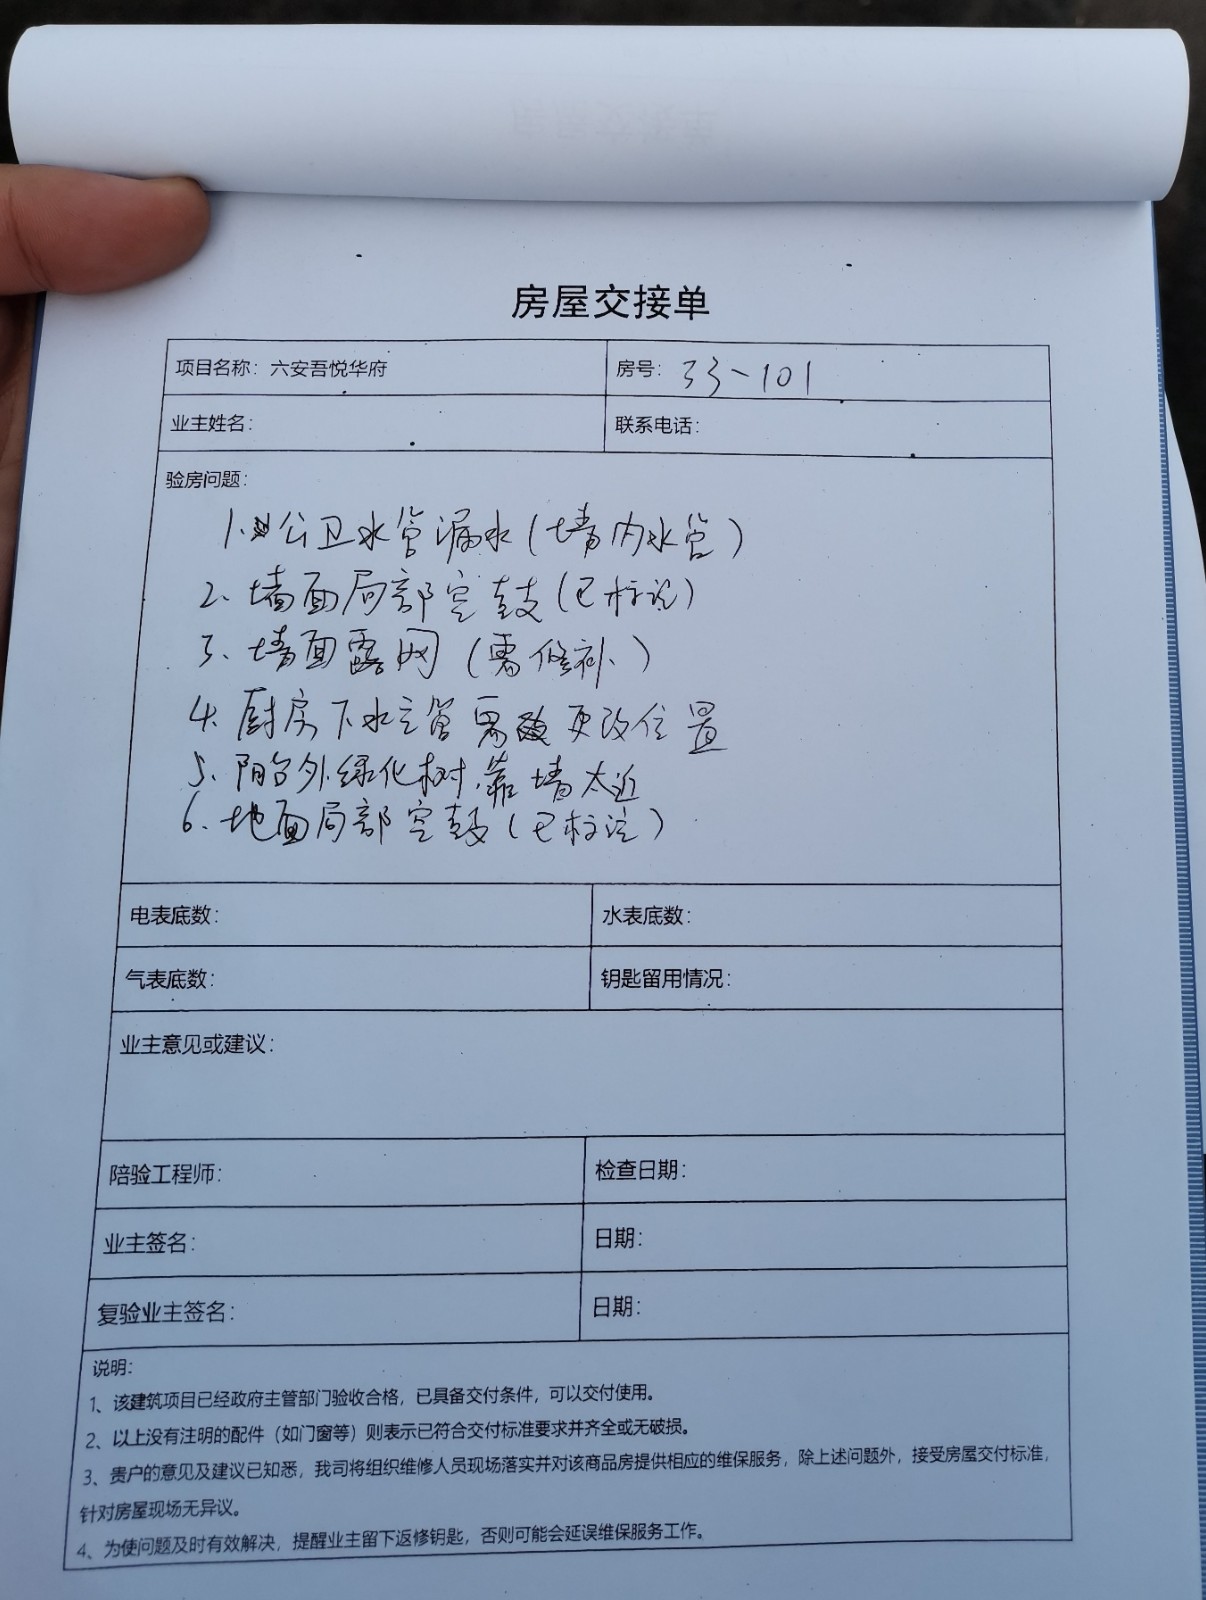 房屋交接单
项目名称：六安吾悦华府
房号：33-101
业主姓名：
联系电话：
验房问题：
1、公卫水管漏水（墙内水管）
2、墙面局部空鼓（已标注）
3、墙面露网（需修补）
4、厨房下水主管需更改位置
5、阳台外绿化树靠墙太近
6、地面局部空鼓（已标注）
电表底数：
水表底数：
气表底数：
钥匙留用情况：
业主意见或建议：
陪验工程师：
检查日期：
业主签名：
日期：
复验业主签名：
日期：
说明：
1、该建筑项目已经政府主管部门验收合格，已具备交付条件，可以交付使用。
2、以上没有注明的配件（如门窗等）则表示已符合交付标准要求并齐全或无破损。
3、贵户的意见及建议已知悉，我司将组织维修人员现场落实并对该商品房提供相应的维保服务，除上述问题外，接受房屋交付标准，
针对房屋现场无异议。
4、为使问题及时有效解决，提醒业主留下返修钥匙，否则可能会延误维保服务工作。